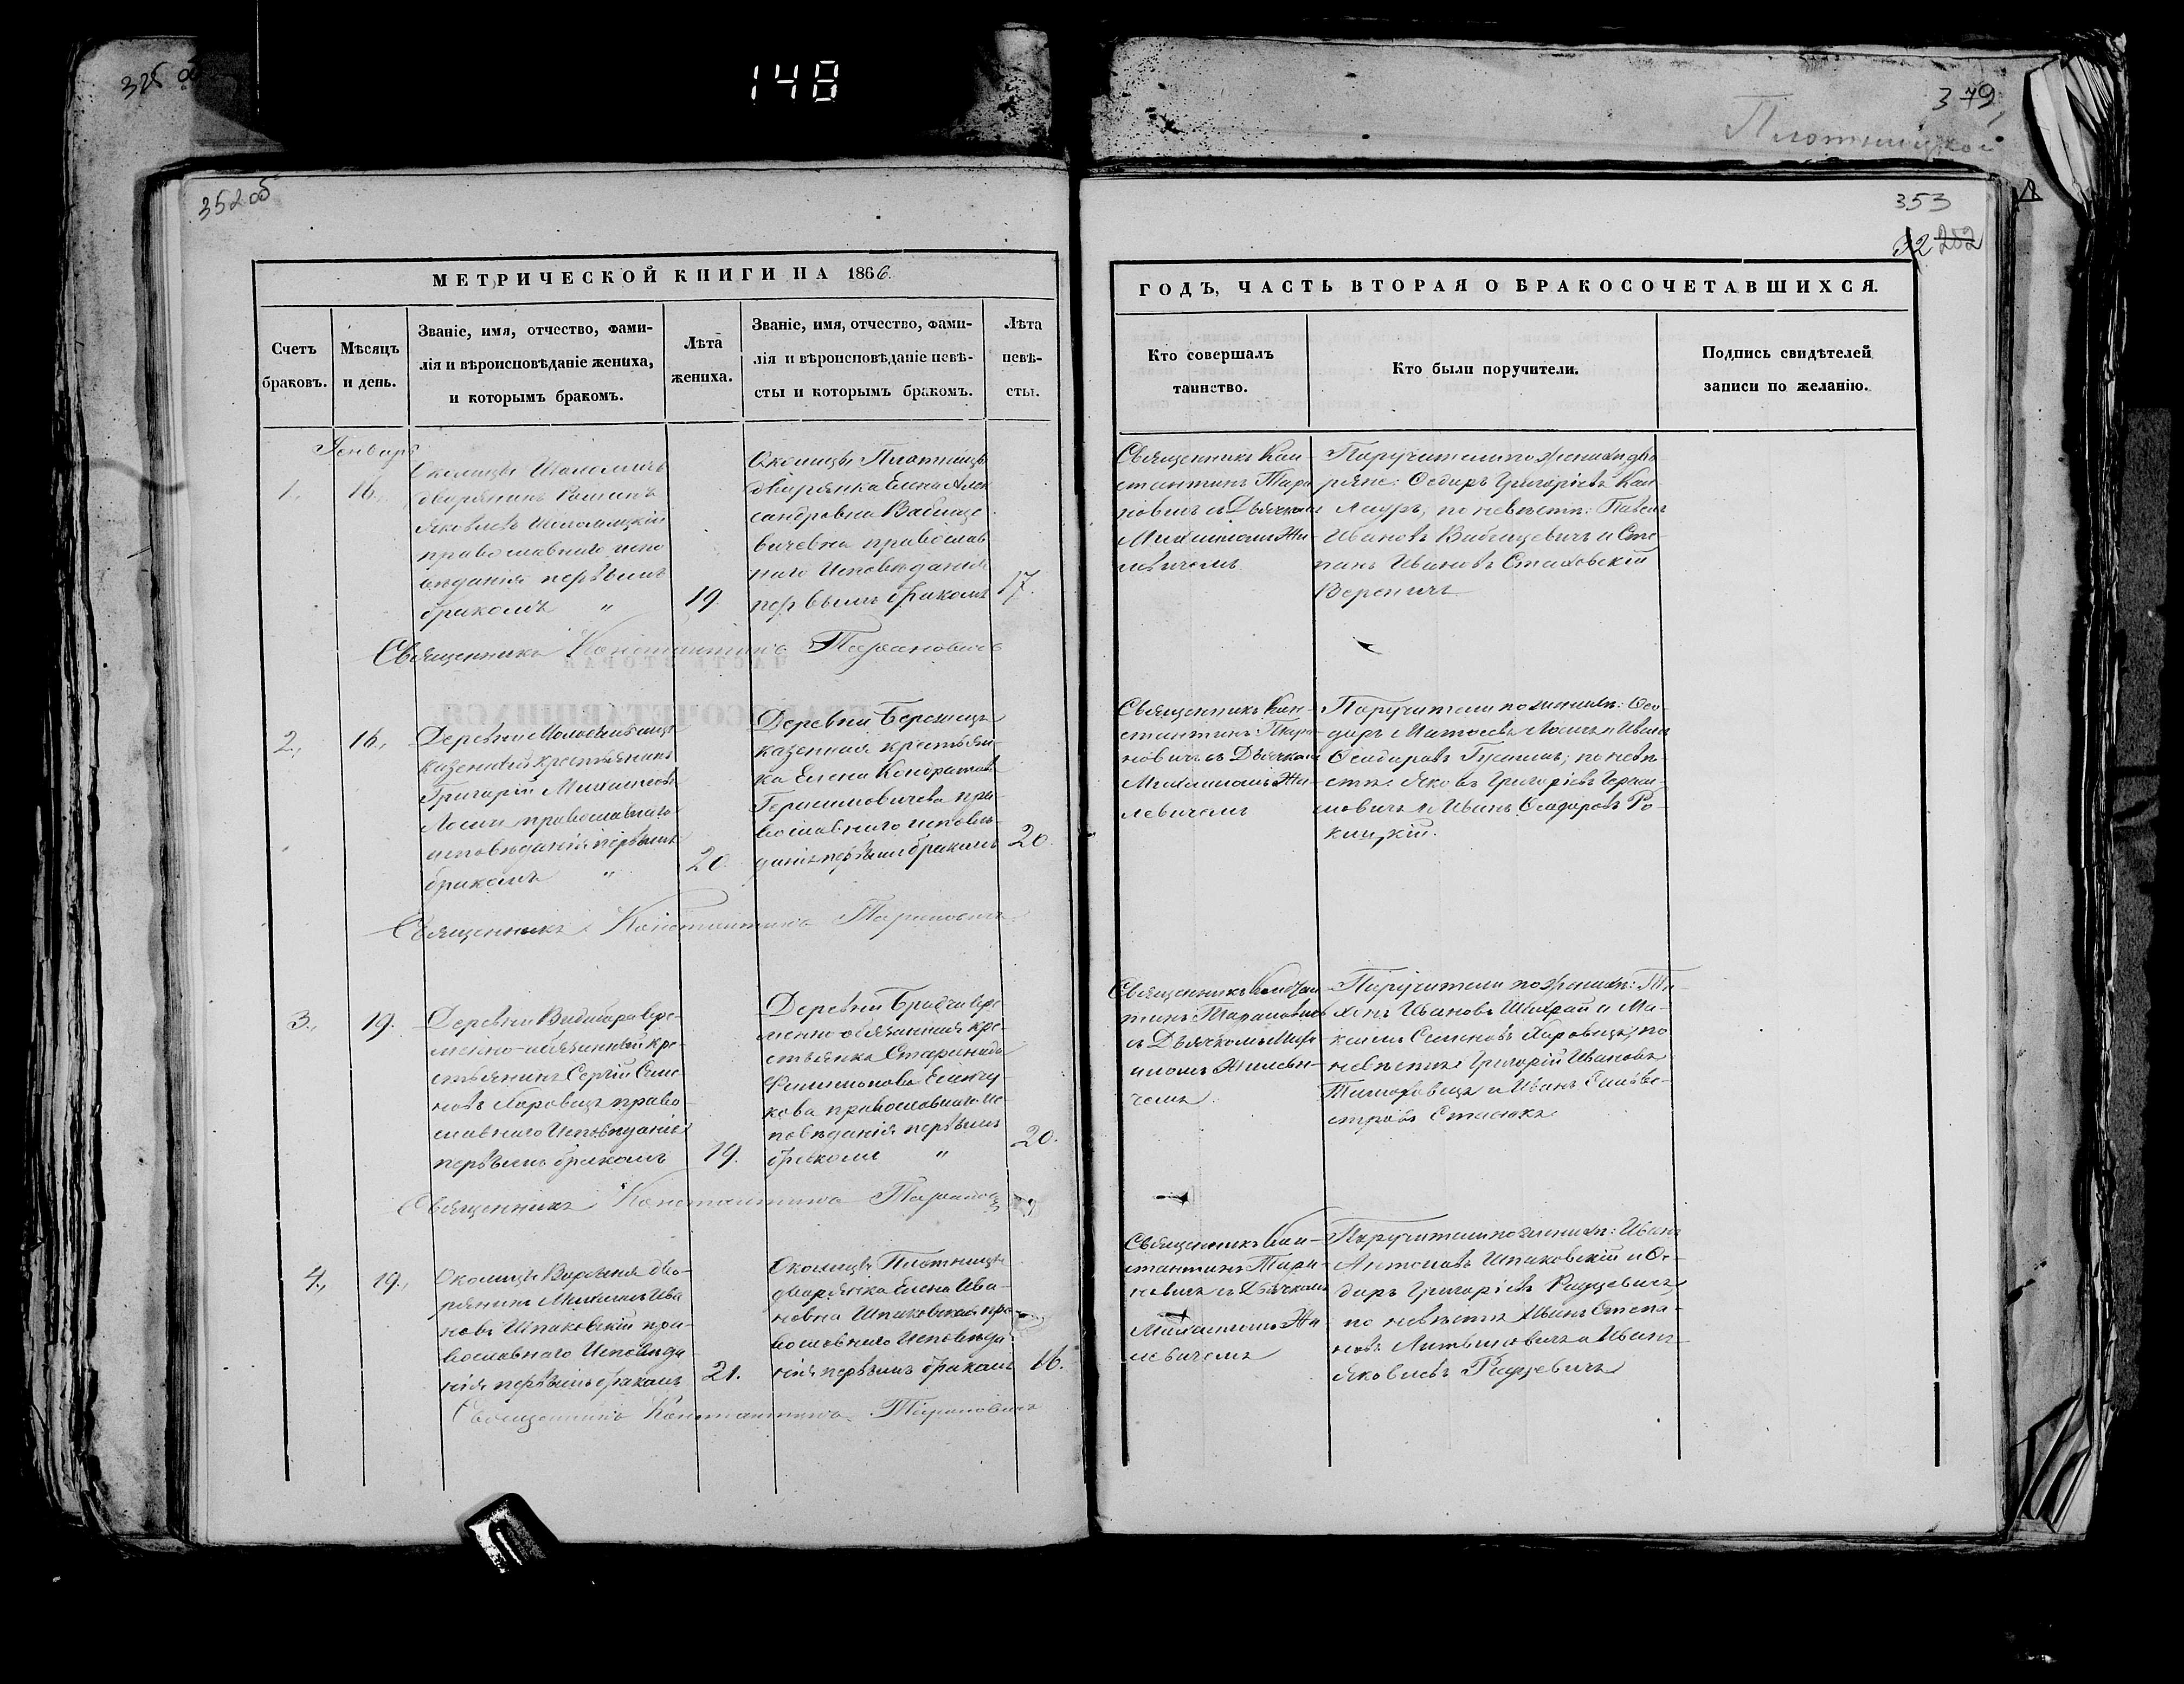 148
379
Плотницкой
352 об
353
32 202
МЕТРИЧЕСКОЙ КНИГИ НА 1866.
Счетъ браковъ.
Мѣсяцъ и день.
Званіе, имя, отчество, фами-
лія и вѣроисповѣданіе жениха,
и которымъ бракомъ.
Лѣта
жениха.
Званіе, имя, отчество, фами-
лія и вѣроисповѣданіе невѣ-
сты и которымъ бракомъ.
Лѣта
невѣ-
сты.
Январь
1. 16.
Околицы
дворянинъ Романъ
Яковлевъ
православнаго испо
вѣданія первымъ
бракомъ " 19.
Околицы Плотницы
дворянка Елена Алек
сандровна
вичевна православ
наго исповѣданія
первымъ бракомъ 17.
Священникъ Константинъ Тарановичъ
2., 16.,
Деревни
казенный крестьянинъ
Григорій Михайловъ
православнаго
исповѣданія первымъ
бракомъ " 20.
Деревни Бережецъ
казенная крестьян-
ка Елена Кондратова
Герасимовичева пра-
вославнаго исповѣ-
данія первымъ бракомъ 20.
Священникъ Константинъ Тарановичъ
3., 19.
Деревни Видибора вре-
менно-обязанный кре-
стьянинъ Сергій Семе
новъ Харовецъ право-
славнаго исповѣданія
первымъ бракомъ 19.
Деревни вре
менно-обязанная кре-
стьянка
Филимонова
кова православнаго ис-
повѣданія первымъ
бракомъ " 20.
Священникъ Константинъ
4., 19.,
Околицы дво-
рянинъ Михаилъ Ива
новъ Шпаковскій пра-
вославнаго исповѣда-
нія первымъ бракомъ 21.
Околицы Плотницы
дворянка Елена Ива-
новна Шпаковская пра-
вославнаго исповѣда-
нія первымъ бракомъ 16.
Священникъ Константинъ Тарановичъ
ГОДЪ, ЧАСТЬ ВТОРАЯ О БРАКОСОЧЕТАВШИХСЯ.
Кто совершалъ
таинство.
Кто были поручители.
Подпись свидѣтелей
записи по желанію.
Священникъ Кон-
стантинъ Тара
новичъ съ Дьячкомъ
Михаиломъ Жи-
левичемъ
Поручители по женихѣ дво
ряне: Ѳедоръ Григорьевъ
по невѣстѣ: Павелъ
Ивановъ и Сте-
панъ Ивановъ Стаховскій
Вереничъ
Священникъ Кон-
стантинъ Тара-
новичъ съ Дьячкомъ
Михаиломъ Жи-
левичемъ
Поручители по женихѣ: Ѳео-
доръ и Иванъ
Ѳеодоровъ по невѣ-
стѣ: Яковъ Григорьевъ Гераси-
мовичъ и Иванъ Ѳеодоровъ Ро-
кицкій.
Священникъ Констан
тинъ Тарановичъ
съ Дьячкомъ Миха
иломъ Жилеви-
чемъ
Поручители по женихѣ: Ти-
хонъ Ивановъ и Ма-
ксимъ Семеновъ Харовецъ, по
невѣстѣ: Григорій Ивановъ
и Иванъ Сильве-
стровъ Стасюкъ
Священникъ Кон-
стантинъ Тара-
новичъ съ Дьячкомъ
Михаиломъ Жи-
левичемъ
Поручители по женихѣ: Иванъ
Антоновъ Шпаковскій и Ѳе-
доръ Григорьевъ Радзевичъ,
по невѣстѣ Иванъ Степа-
новъ Литвиновичъ и Иванъ
Яковлевъ Радзевичъ